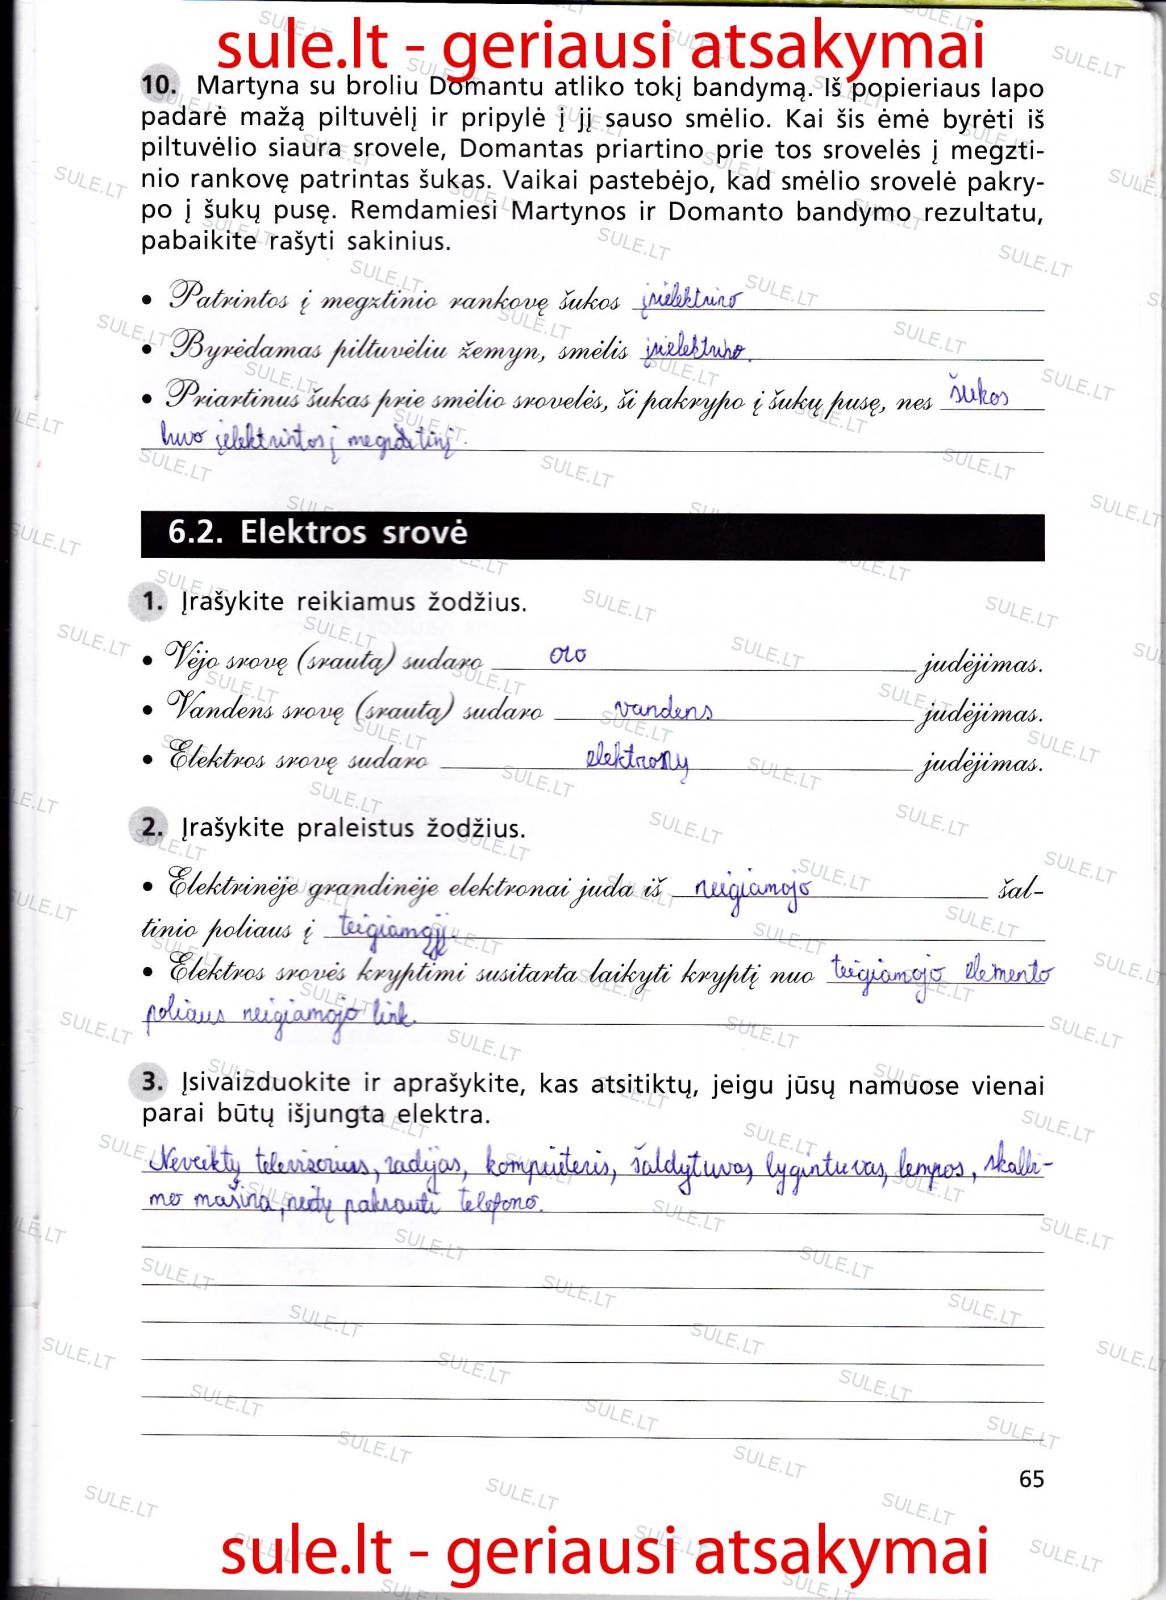 sule.lt - geriausi atsakymai
10. Martyna su broliu Domantu atliko tokį bandymą. Iš popieriaus lapo
padarė mažą piltuvėlį ir pripylė į jį sauso smėlio. Kai šis ėmė byrėti iš
piltuvėlio siaura srovele, Domantas priartino prie tos srovelės į megzti-
nio rankovę patrintas šukas. Vaikai pastebėjo, kad smėlio srovelė pakry-
po į šukų pusę. Remdamiesi Martynos ir Domanto bandymo rezultatu,
pabaikite rašyti sakinius.
• Patrintos į megztinio rankovę šukos įsielektrino
• Byrėdamas piltuvėliu žemyn, smėlis įsielektrino.
• Priartinus šukas prie smėlio srovelės, ši pakrypo į šukų pusę, nes šukos
buvo įelektrintos į
6.2. Elektros srovė
1. Įrašykite reikiamus žodžius.
• Vėjo srovę (srautą) sudaro oro judėjimas.
• Vandens srovę (srautą) sudaro vandens judėjimas.
• Elektros srovę sudaro elektronų judėjimas.
2. Įrašykite praleistus žodžius.
• Elektrinėje grandinėje elektronai juda iš neigiamojo šal-
tinio poliaus į teigiamąjį.
• Elektros srovės kryptimi susitarta laikyti kryptį nuo teigiamojo elemento
poliaus neigiamojo link.
3. Įsivaizduokite ir aprašykite, kas atsitiktų, jeigu jūsų namuose vienai
parai būtų išjungta elektra.
Neveiktų televizorius, radijas, kompiuteris, šaldytuvas, lygintuvas, lempos, skalbi-
mo mašina, pakrauti telefono.
65
sule.lt - geriausi atsakymai